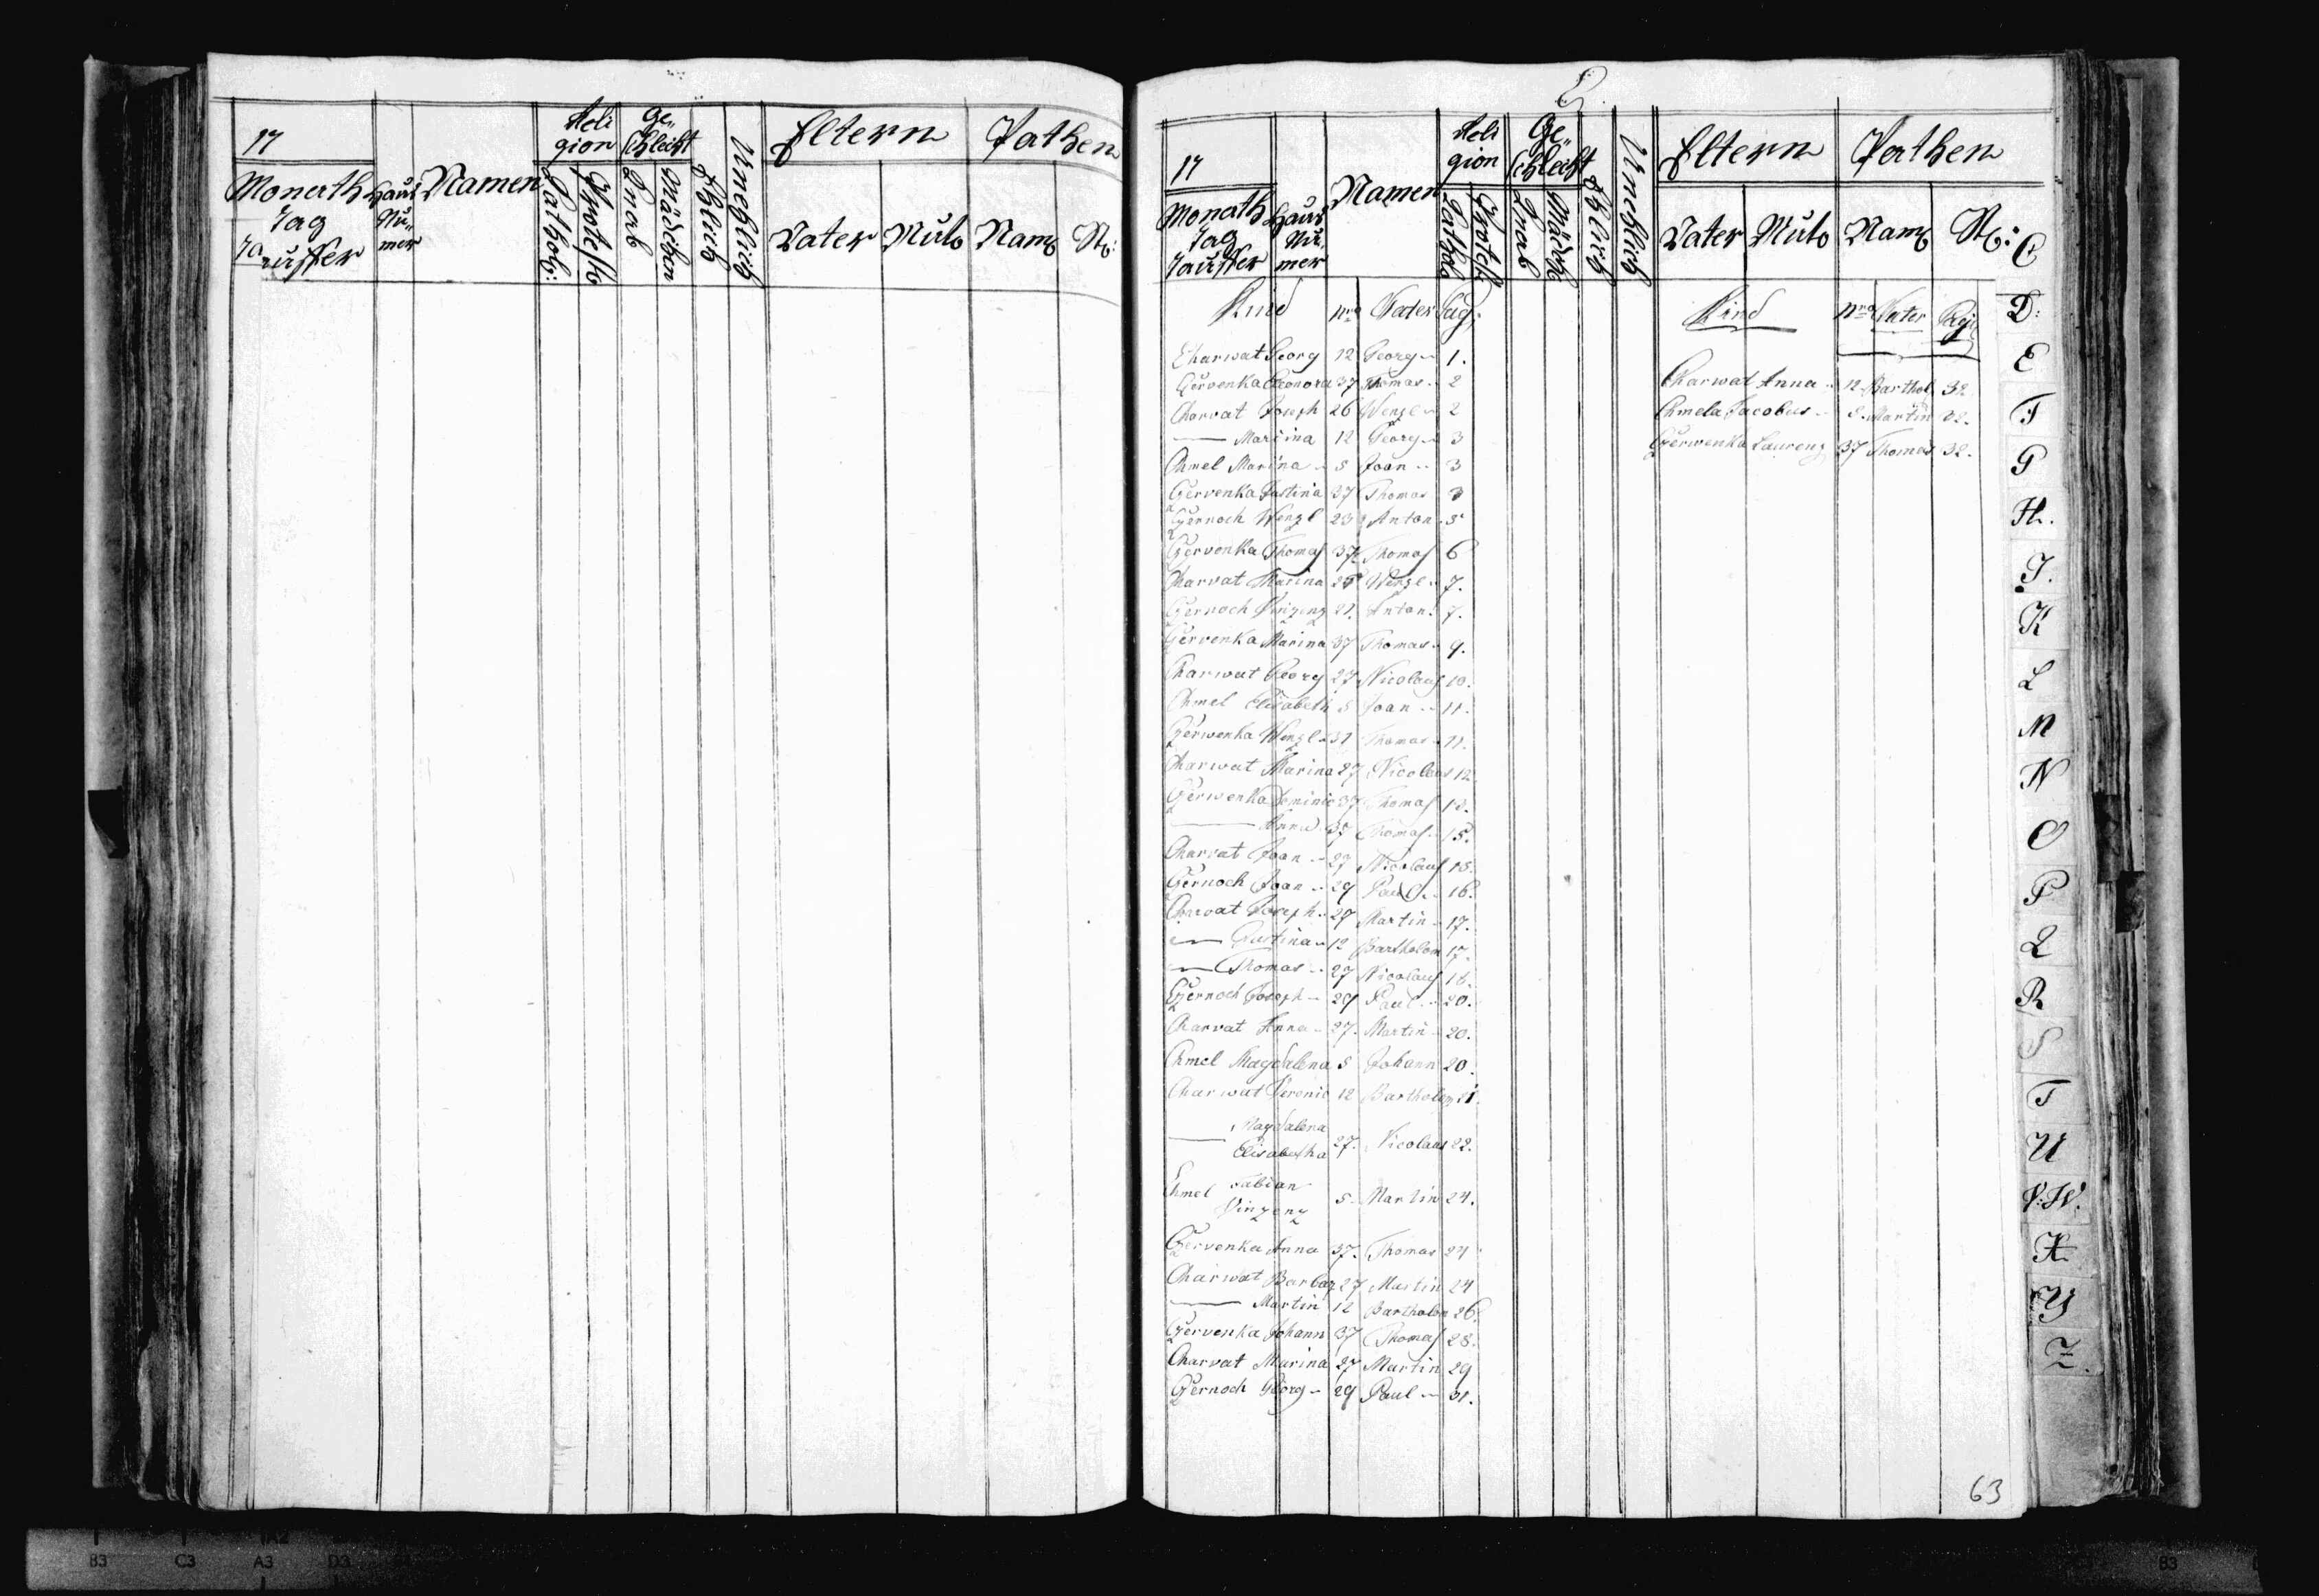 17
Monath
Tag
Tauffer
Haus
Nu-
mer
Namen
Reli
gion
Cathol:
Protest
Ge-
schlecht
Knab
Mädchen
Ehlich
Unehlich
Eltern
Vater
Mutt
Pathen
Nam
St:
C.
17
Monath
Tag
Tauffer
Haus
Nu
mer
Namen
Reli
gion
Cathol
Protest
Ge-
schlecht
Knab
Mädch
Ehlich
Unehlich
Eltern
Vater
Mutt
Pathen
Nam
St:
Kind nro Vater Pag:
Charwat Georg 12 Georg 1.
Czervenka Eleonora 37 Thomas 2
Charvat Joseph 26 Wenzl 2
— Marina 12 Georg 3
Chmel Marina 5 Joan 3
Czervenka Justina 37 Thomas 3
Czernoch Wenzl 29 Anton 5
Czervenka Thomas 37 Thomas 6
Charvat Marina 26 Wenzl 7.
Czernoch Vinzenz 29. Anton. 7.
Czervenka Marina 37 Thomas 9.
Charwat Georg 27 Nicolaus 10.
Chmel Elisabeth 5 Joan 11.
Czerwenka Wenzl 37 Thomas 11.
Charwat Marina 27 Nicolaus 12.
Czerwenka Dominic 37 Thomas 13.
— Anna 37 Thomas 15.
Charvat Joan 27 Nicolaus 15.
Czernoch Joan 29 Paul 16.
Charvat Joseph 27 Martin 17.
— Justina 12 Bartholom 17.
— Thomas 27 Nicolaus 18.
Czernoch Joseph 29 Paul 20.
Charvat Anna 27. Martin 20.
Chmel Magdalena 5 Johann 20.
Charwat Veronic 12 Bartholom 21.
— Magdalena
Elisabetha 27. Nicolaus 22.
Chmel Fabian
Vinzenz 5 Martin 24.
Czervenka Anna 37. Thomas 24
Charwat Barbar 27 Martin 24
— Martin 12 Bartholom 26.
Czervenka Johann 37 Thomas 28.
Charvat Marina 27 Martin 29
Czernoch Georg 29 Paul 31.
Kind nro Vater Pagi
Charwat Anna 12 Barthol 32
Chmela Jacobus 5 Martin 32.
Czerwenka Laurenz 37 Thomas 32.
C
D:
E
F
G
H.
I.
K
L
M
N
O
P
Q
R
S
T
U
V:W.
X
Y
Z.
63
B3
C3
A2
A3
D3
B3